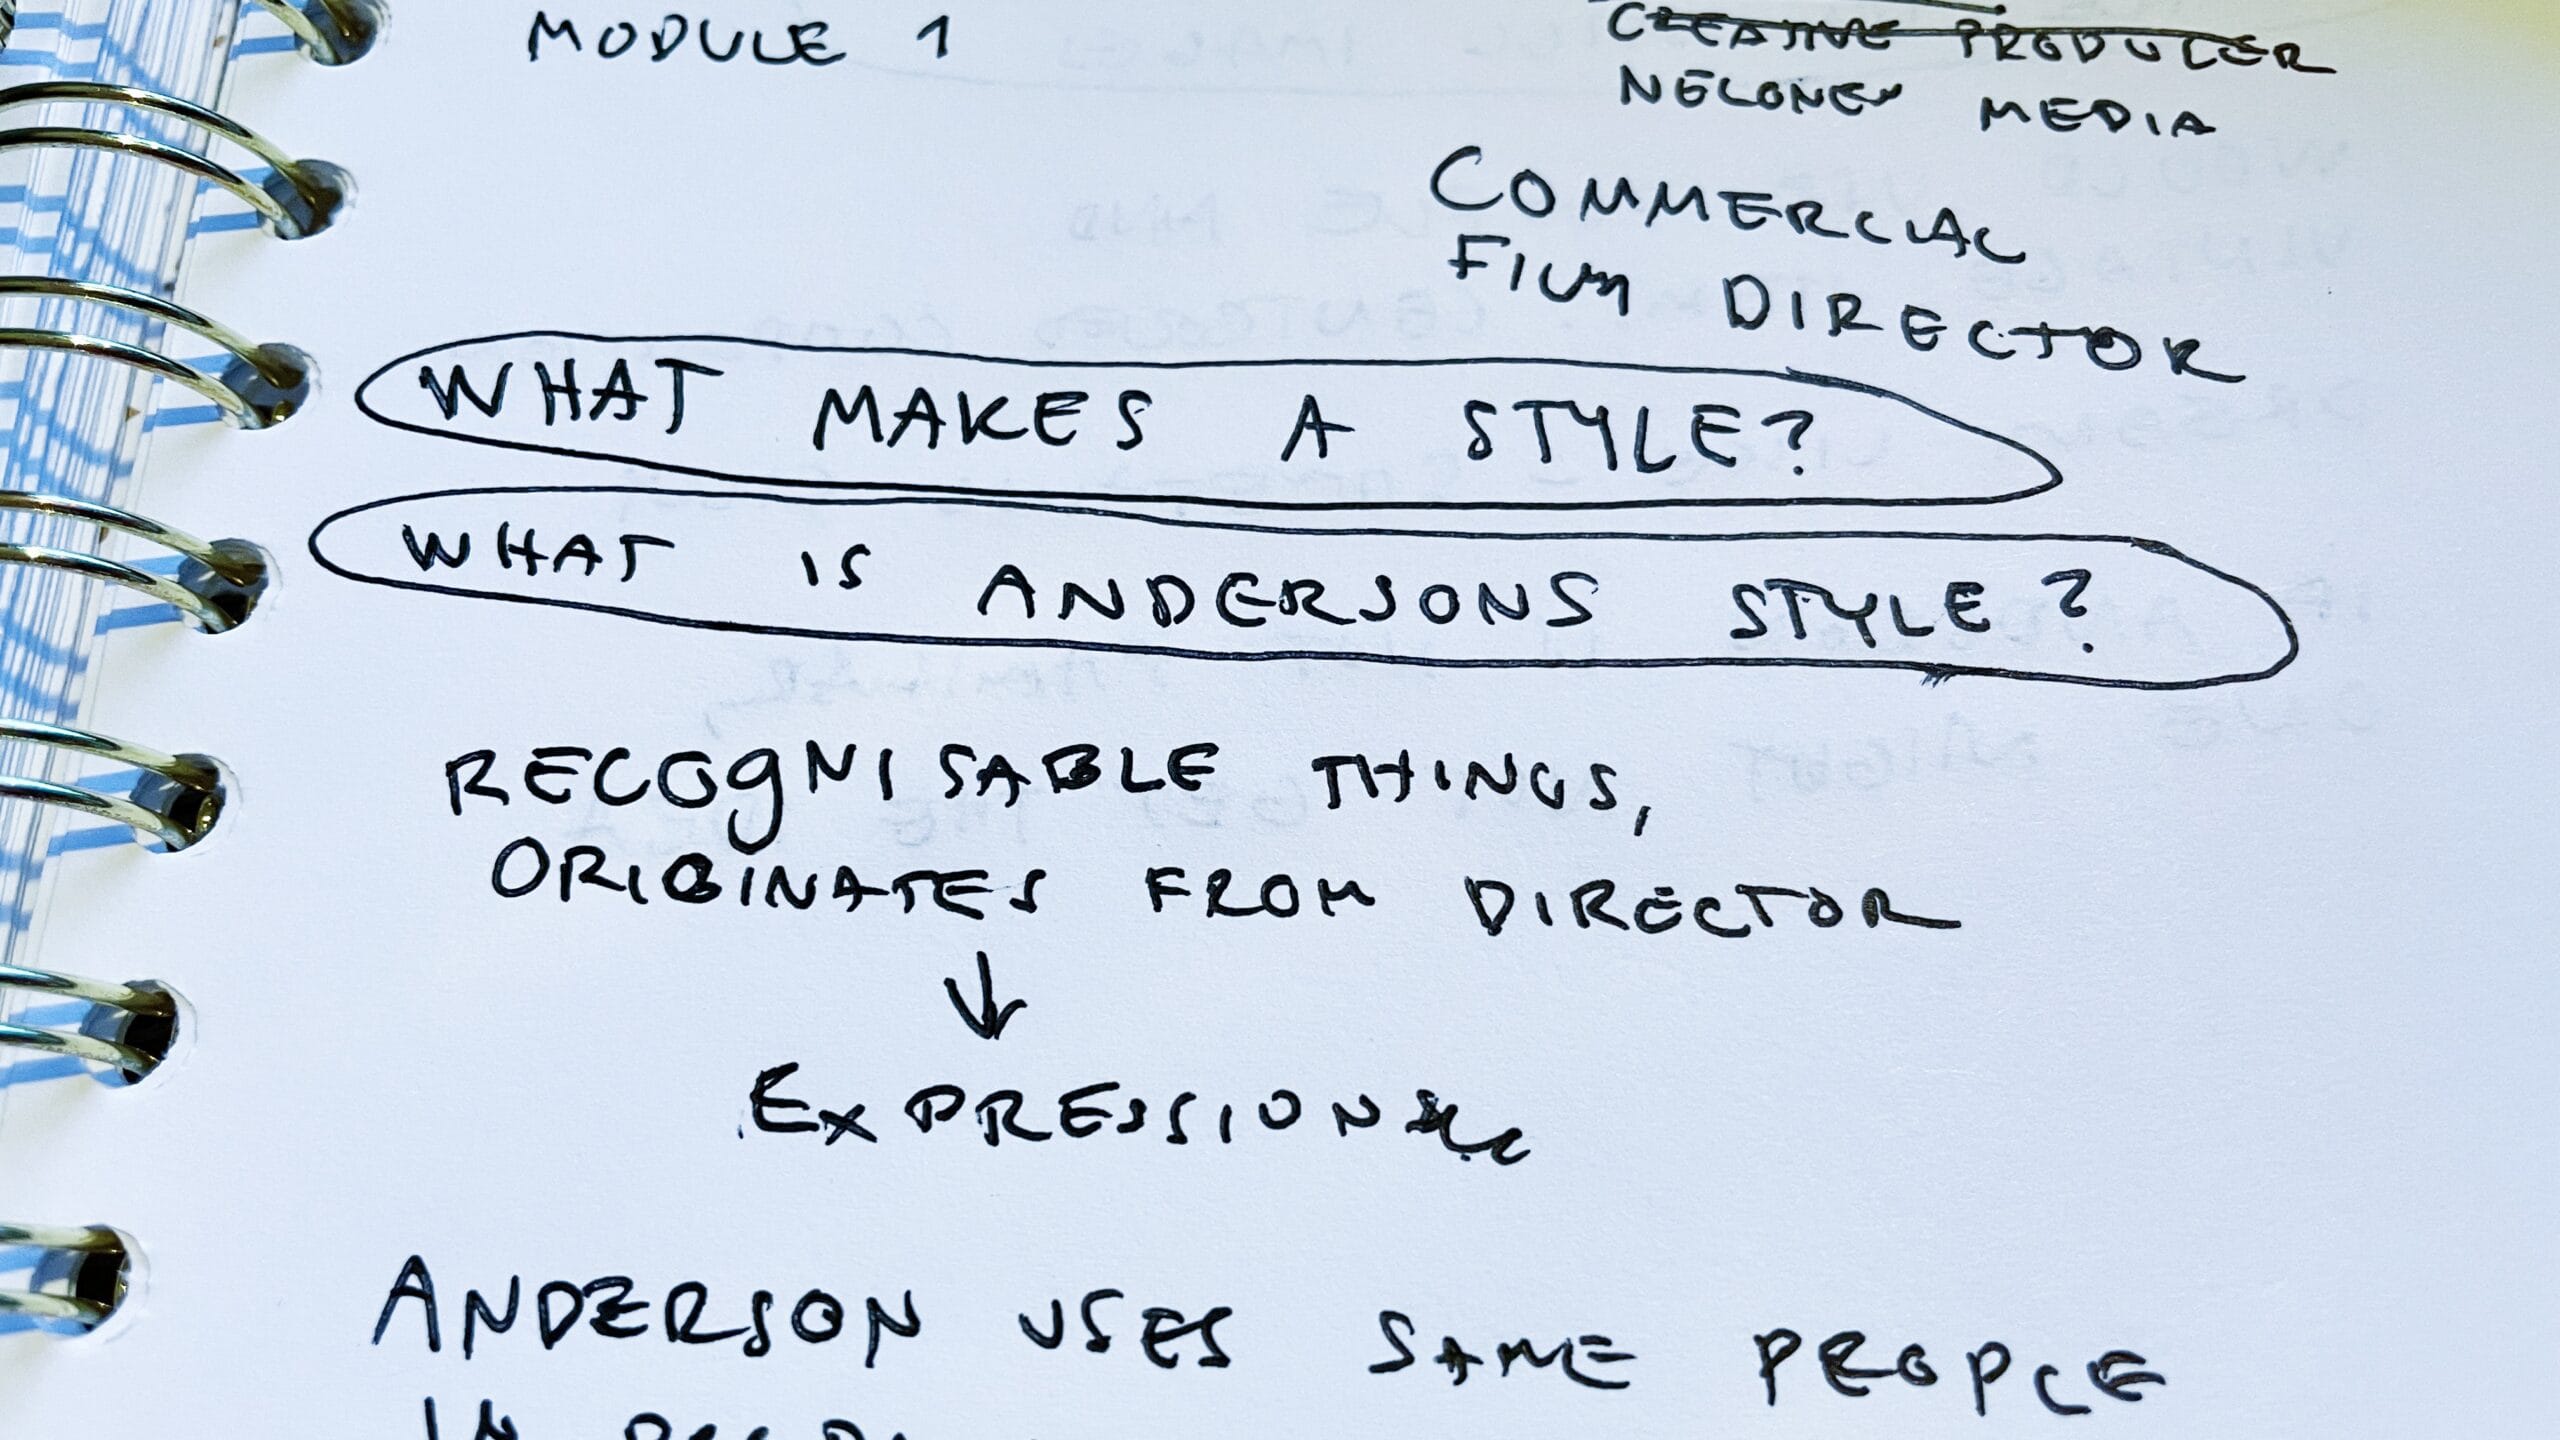 MODULE 1
CREATIVE PRODUCER
NELONEN MEDIA
COMMERCIAL
FILM DIRECTOR
WHAT MAKES A STYLE?
WHAT IS ANDERSONS STYLE?
RECOGNISABLE THINGS,
ORIGINATES FROM DIRECTOR
↓
ANDERSON USES SAME PEOPLE
IN